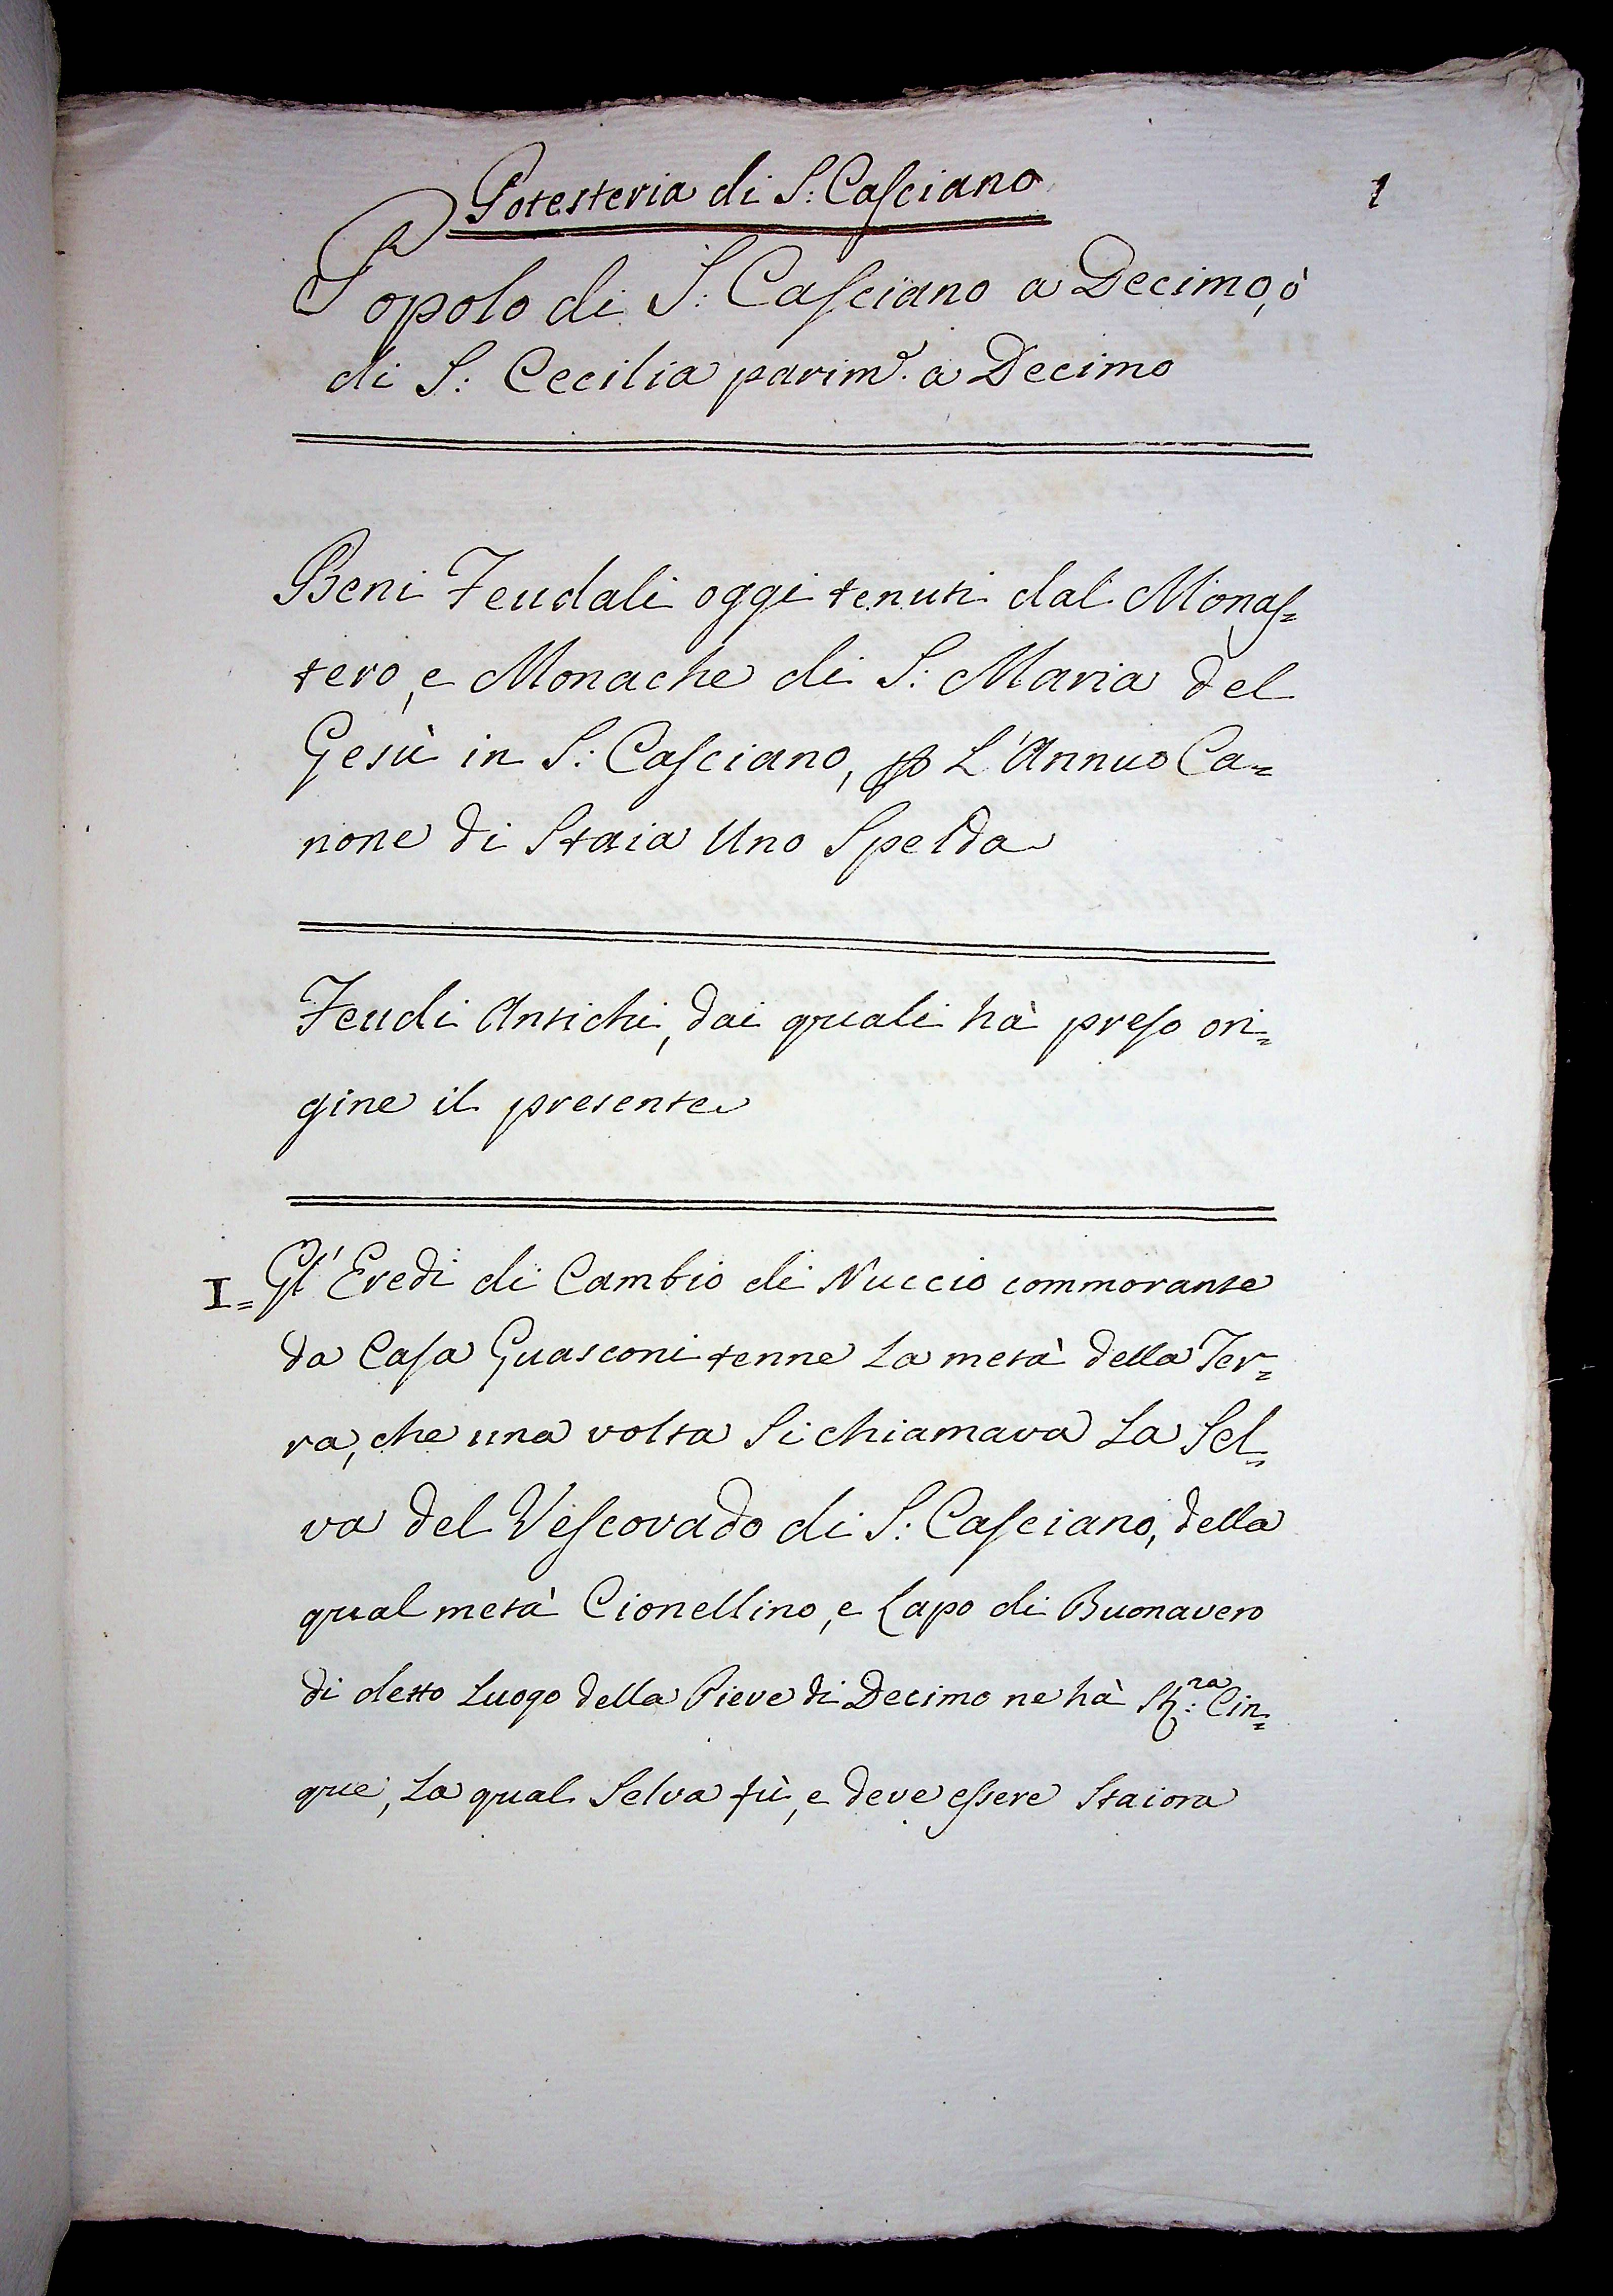 Potesteria di S: Casciano
1
Popolo di S: Casciano a Decimo, ò
di S: Cecilia parim.e a Decimo
Beni Feudali oggi tenuti dal Monas=
tero, e Monache di S: Maria del
Gesù in S: Casciano, p L'Annuo Ca=
none di Staia Uno Spelda
Feudi Antichi, dai quali hà preso ori=
gine il presente
I= Gl' Eredi di Cambio di Nuccio commorante
da Casa Guasconi tenne La metà della Ter=
ra, che una volta Si chiamava La Sel=
va del Vescovado di S: Casciano, della
qual metà Cionellino, e Lapo di Buonavero
di detto Luogo della Pieve di Decimo ne hà St:ra Cin=
que, La qual Selva fù, e deve essere Staiora